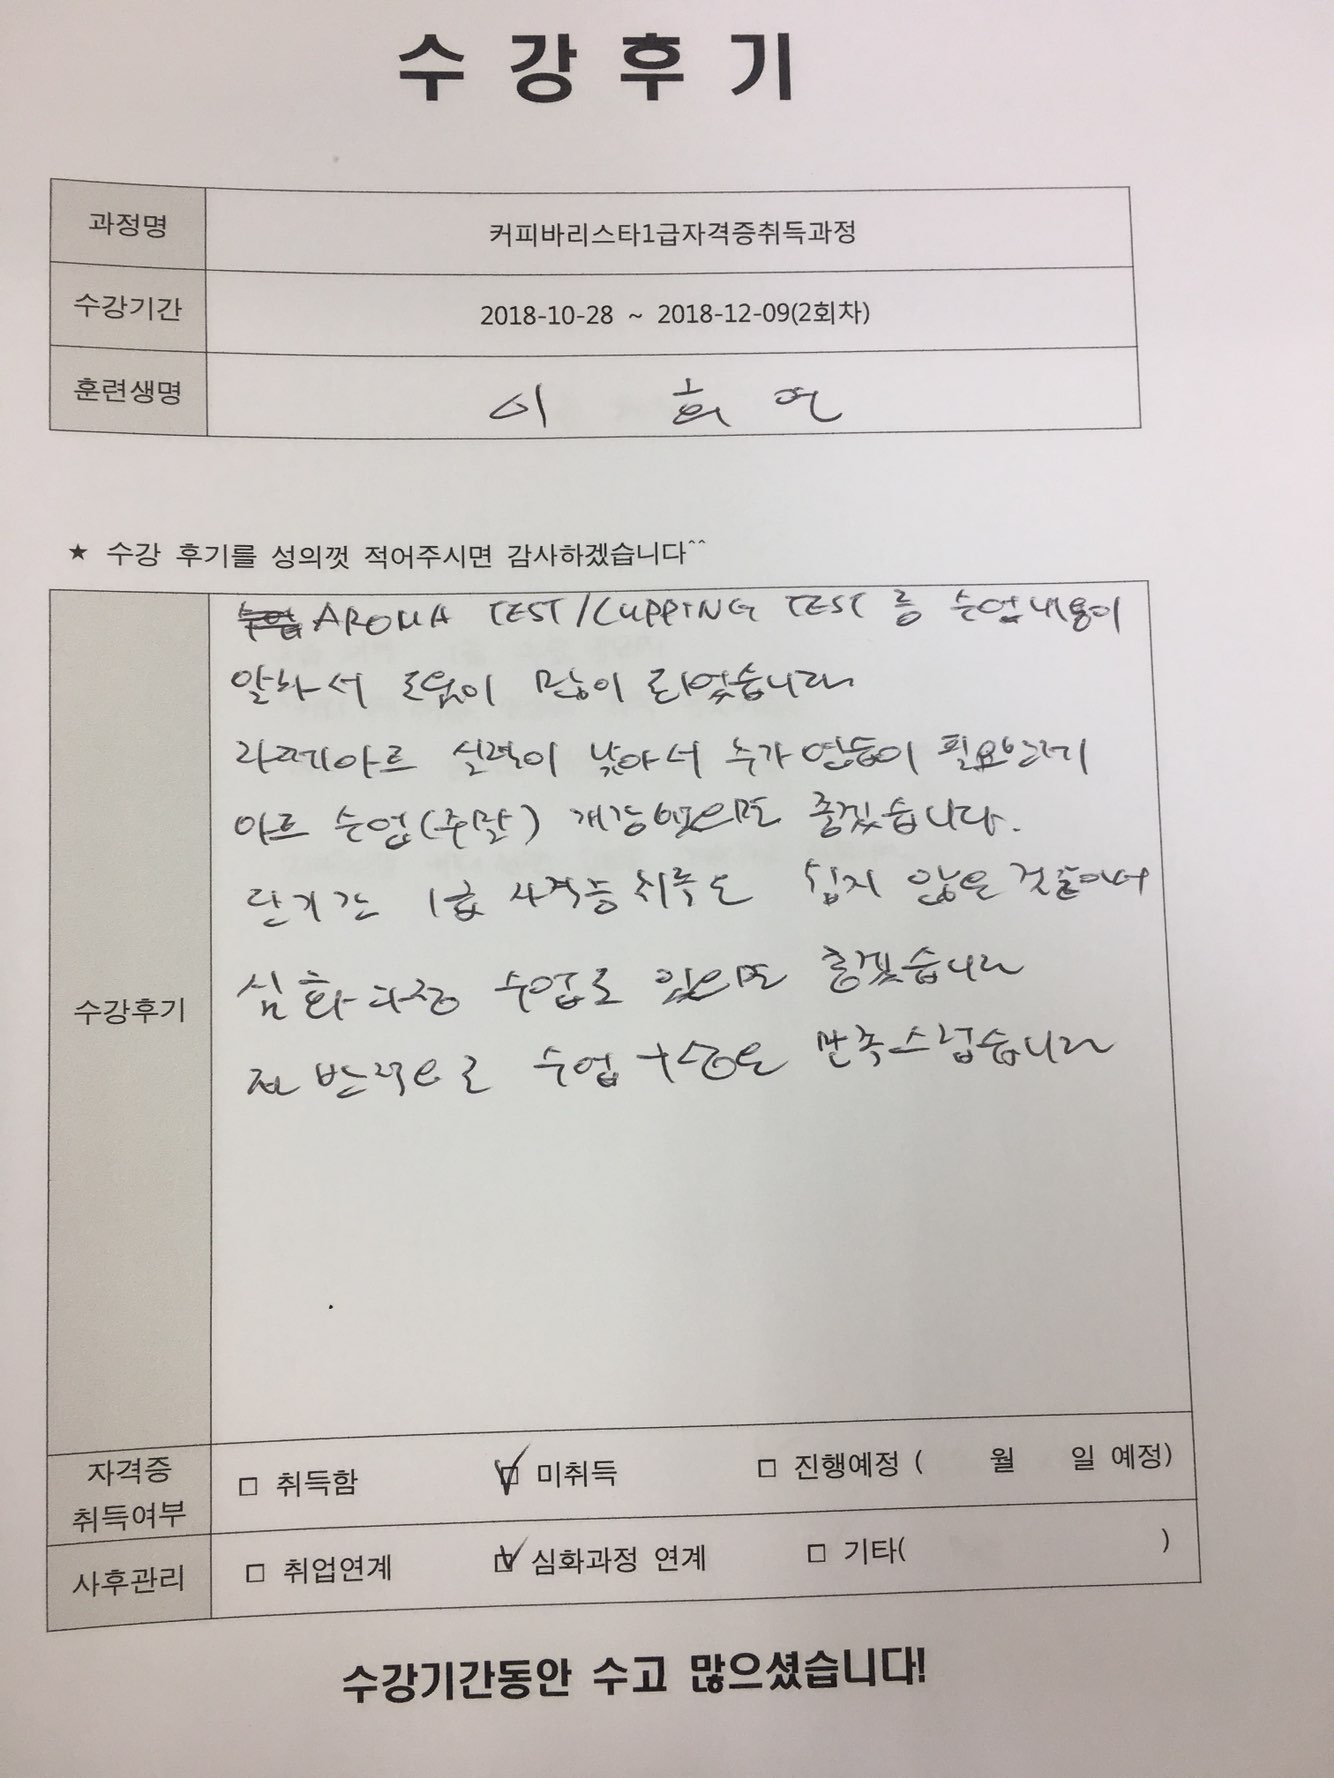 수강후기
과정명 커피바리스타1급자격증취득과정
수강기간 2018-10-28 ~ 2018-12-09(2회차)
훈련생명 이 희 연
★ 수강 후기를 성의껏 적어주시면 감사하겠습니다^^
AROMA TEST/CUPPING TEST 등 수업내용이
알차서 도움이 많이 되었습니다
라떼아트 실력이 낮아서 추가연습이 필요한데
아트 수업(주말) 개강했으면 좋겠습니다.
단기간 1급 자격증 취득도 쉽지 않은 것 같아서
심화과정 수업도 있으면 좋겠습니다
전반적으로 수업 구성은 만족스럽습니다
수강후기
자격증 취득여부 □ 취득함 ☑ 미취득 □ 진행예정 ( 월 일 예정)
사후관리 □ 취업연계 ☑ 심화과정 연계 □ 기타( )
수강기간동안 수고 많으셨습니다!